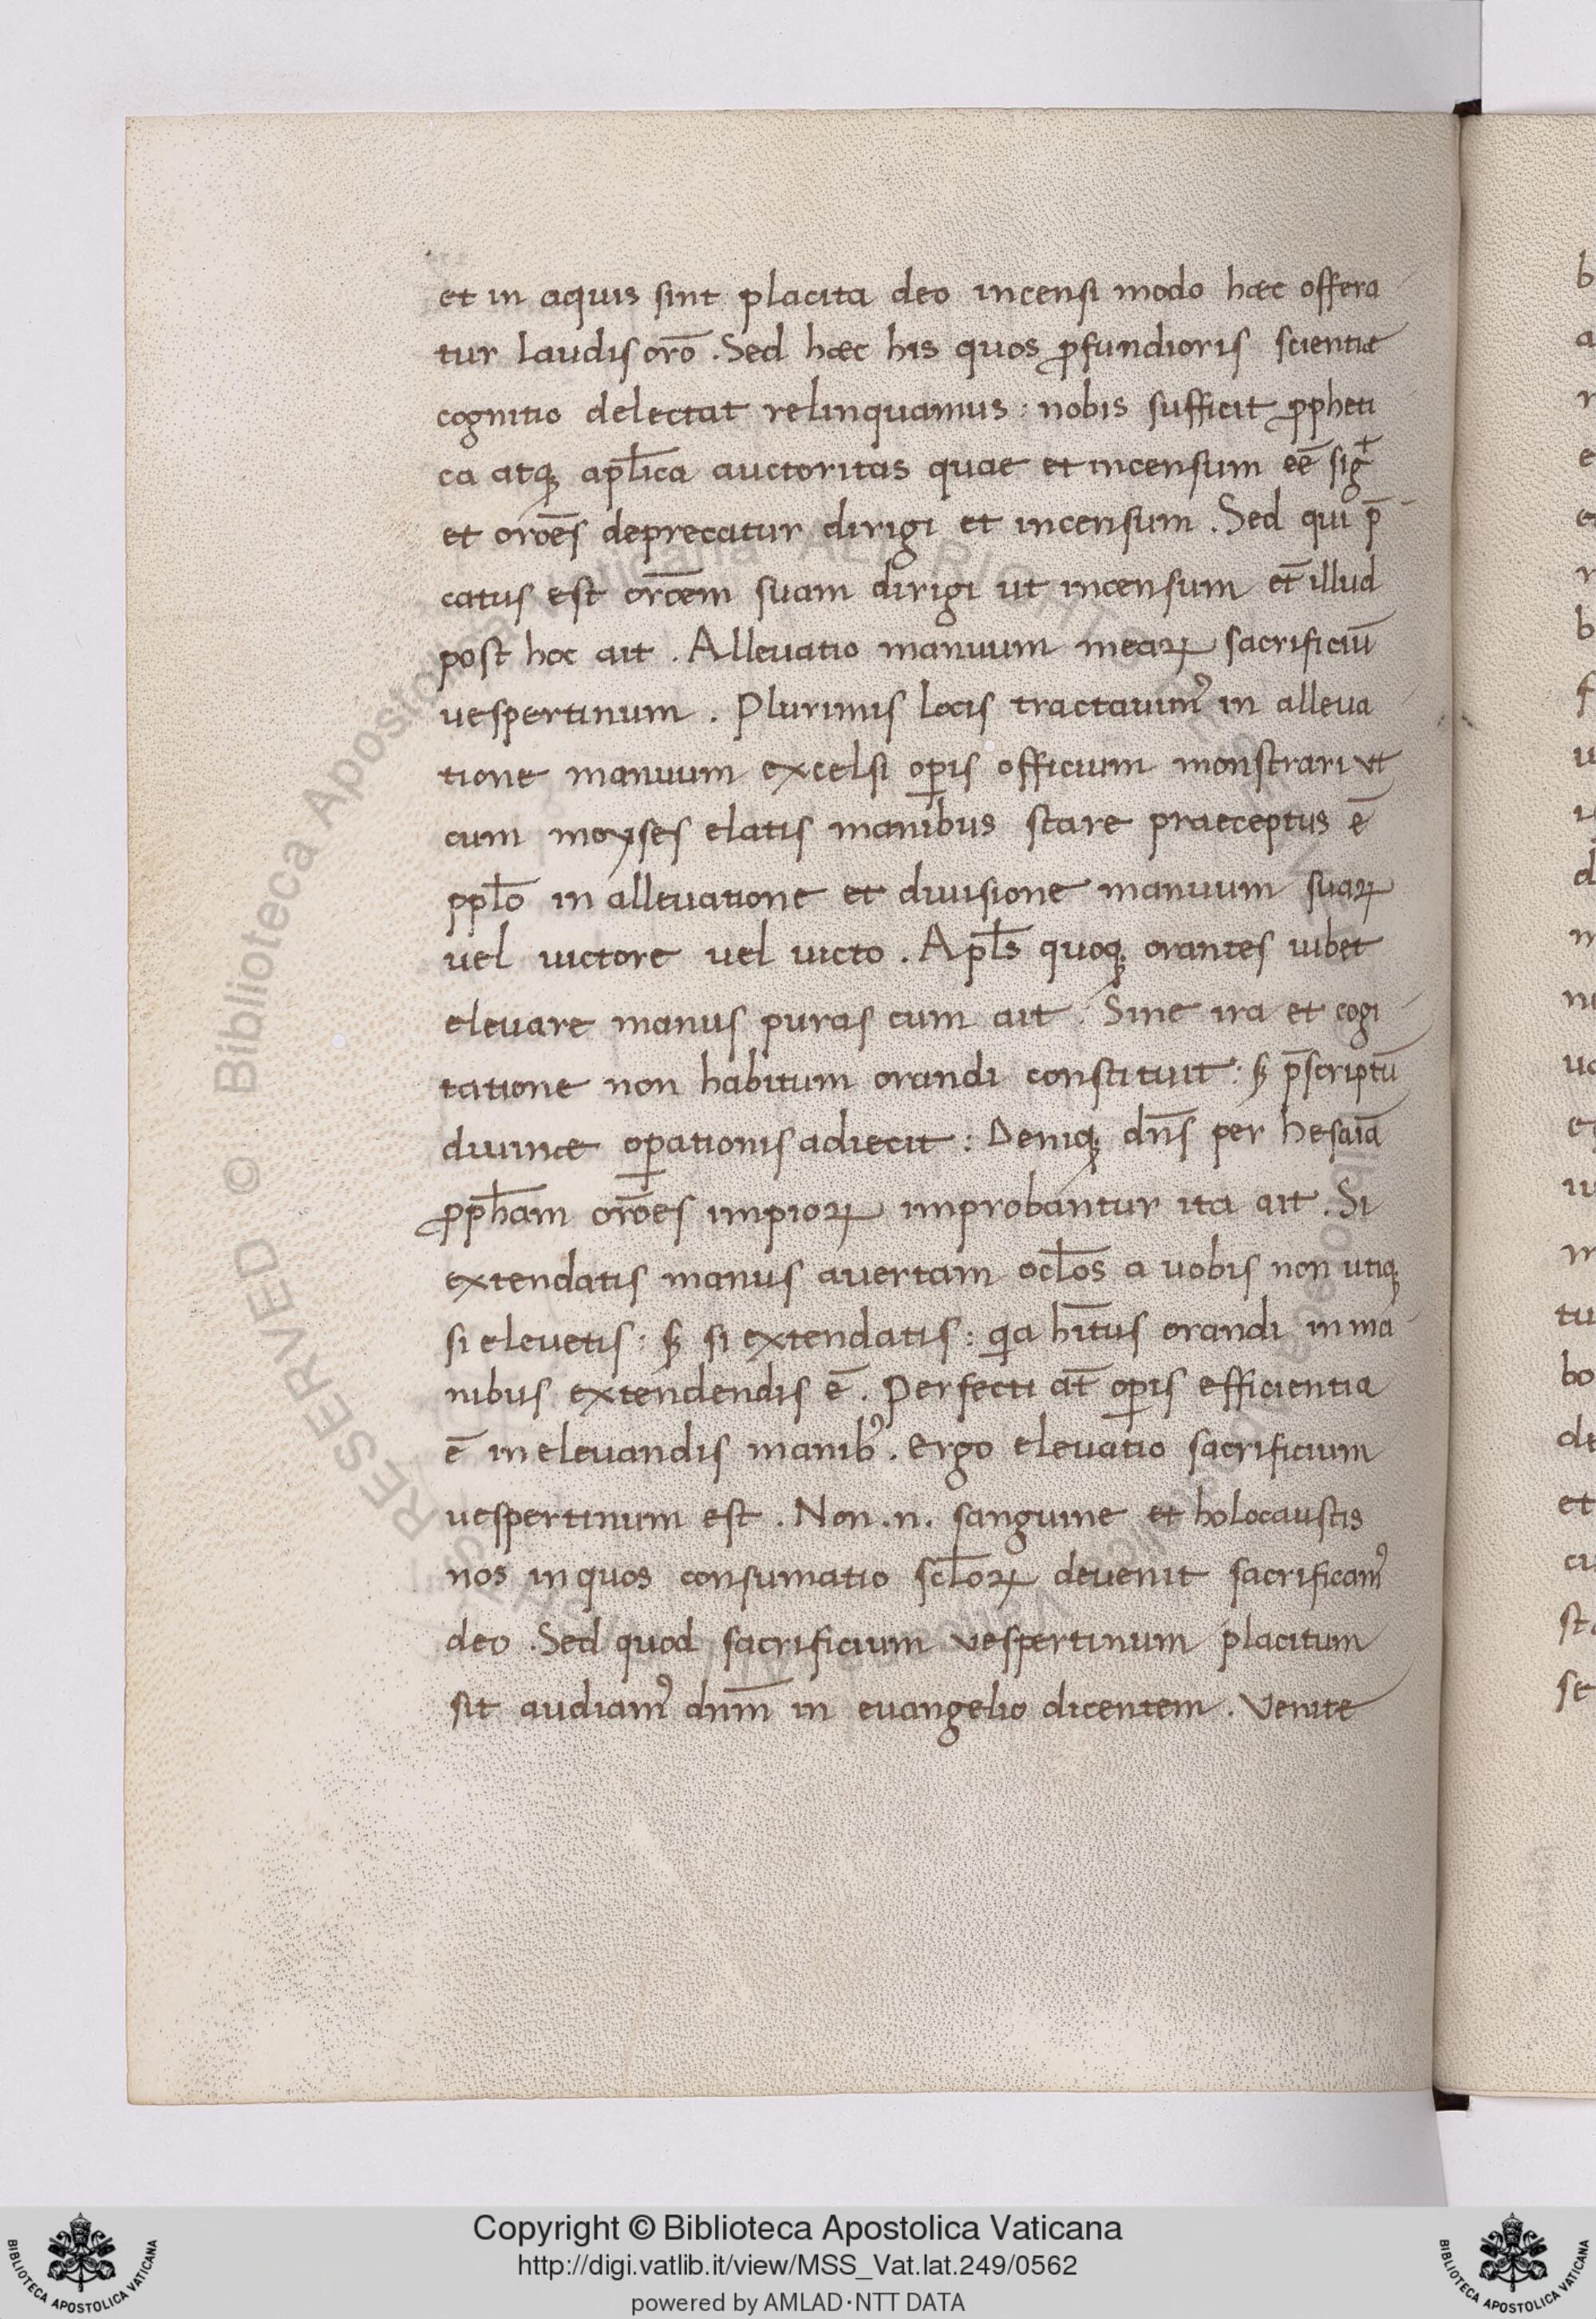 et in aquis sint placita deo incensi modo hæc offera
tur laudis orō . Sed hæc his quos ꝓfundioris scientiæ
cognitio delectat relinquamus : nobis sufficit ꝓpheti
ca atqꝫ apl̄ica auctoritas quae et incensum eē̄ siḡt
et orōēs deprecatur dirigi et incensum . Sed qui p̄
catus est orōem suam dirigi ut incensum et̄ illud
post hoc ait . Allevatio manuum mearꝝ sacrificiū
uespertinum . Plurimis locis tractauim᾽ in alleua
tione manuum excelsi oꝑis officium monstrari ut
cum moyses elatis manibus stare praeceptus ē
ppl̄o in alleuatione et diuisione manuum suaꝝ
uel uictore uel uicto . Apl̄s quoqꝫ orantes iubet
eleuare manus puras cum ait . Sine ira et cogi
tatione non habitum orandi constituit : sꝫ p̄scriptū
diuinæ oꝑationis adiecit : Deniqꝫ dn̄s per hesaiā
ꝓph̄am orōes impioꝝ improbantur ita ait . Si
extendatis manus auertam ocl̄os a uobis non utiqꝫ
si eleuetis : sꝫ si extendatis : qia hītus orandi in ma
nibus extendendis ē . Perfecti at̄ oꝑis efficientia
ē in eleuandis manib᾽ . Ergo eleuatio sacrificium
uespertinum est . Non .n. sanguine et holocaustis
nos in quos consumatio scl̄oꝝ deuenit sacrificam᾽
deo . Sed quod sacrificium vespertinum placitum
sit audiam᾽ dnm̄ in euangelio dicentem . Venite
© Biblioteca Apostolica Vaticana ALL RIGHTS RESERVED
Copyright © Biblioteca Apostolica Vaticana
http://digi.vatlib.it/view/MSS_Vat.lat.249/0562
powered by AMLAD·NTT DATA
BIBLIOTECA APOSTOLICA VATICANA
BIBLIOTECA APOSTOLICA VATICANA